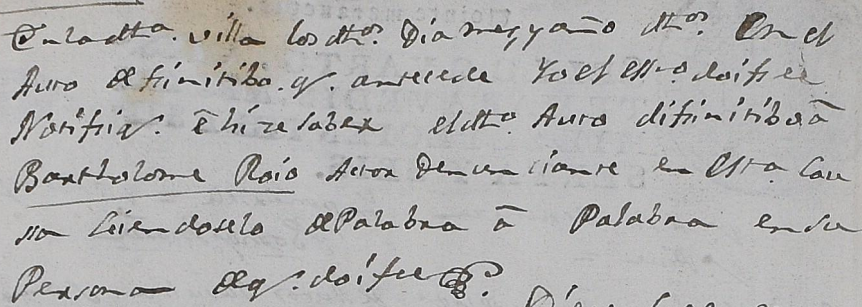 En la dha. villa los dhos. Dia mes, y año dhos. En el
Auto difinitibo. q. antecede Yo el essno. doi fee
Notifiq. e hize saber el dho. Auto difinitibo â
Bartholome Roio Actor Denunciante en esta Cau
sa leiendoselo de Palabra â Palabra en su
Persona de q. doi fee